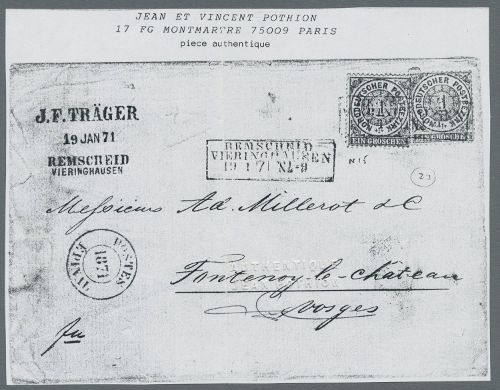 JEAN ET VINCENT POTHION
17 FG MONTMARTRE 75009 PARIS
piece authentique
NORDDEUTSCHER POSTBEZIRK
1
EIN GROSCHEN
NORDDEUTSCHER POSTBEZIRK
1
EIN GROSCHEN
J. F. TRÄGER
19 JAN 71
REMSCHEID
VIERINGHAUSEN
REMSCHEID
VIERINGHAUSEN
19 1 71
N15
Messieurs Ad. Millerot & C
POSTES
1871
EPINAL
Fontenoy-le-château
Vosges